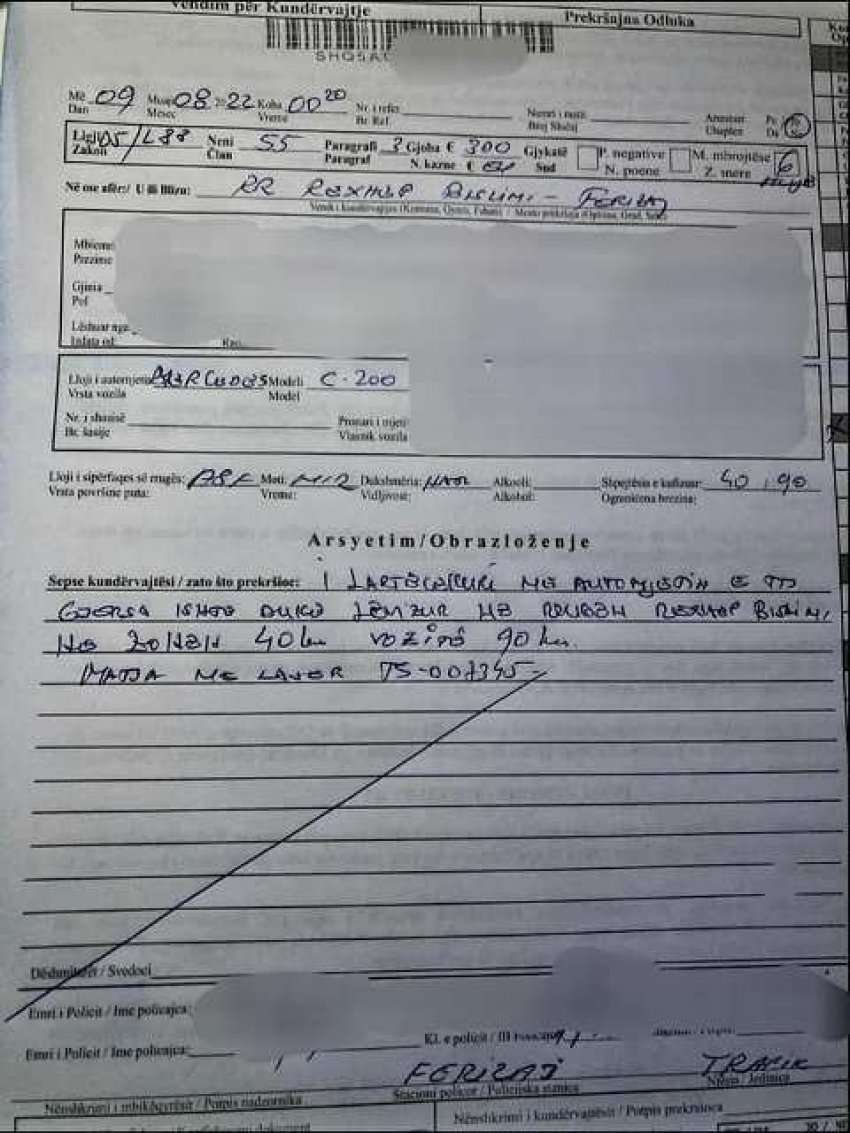 Vendim për Kundërvajtje Prekršajna Odluka
SHQ5A
Më 09 Muaji 08 2022 Koha 00 20 Nr. i refer.
Dan Mesec Vreme Br. Ref.
Ligji 05/L88 Neni 55 Paragrafi 3 Gjoba € 300 Gjykatë P. negative M. mbrojtëse 6
Zakon Član Paragraf N. kazne € Sud N. poene Z. mere
Në ose afër:/ U ili Blizu: RR REXHEP BISLIMI - FERIZAJ
Mbiemri
Prezime
Gjinia
Pol
Lëshuar nga
Izdata od:
Lloji i automjetit Modeli C-200
Vrsta vozila Model
Nr. i shasisë Pronari i mjetit
Br. šasije Vlasnik vozila
Lloji i sipërfaqes së rrugës: ASF Moti: MIR Dukshmëria: NATË Alkooli: Shpejtësia e kufizuar: 40, 90
Vrsta površine puta: Vreme: Vidljivost: Alkohol: Ograničena brzina:
Arsyetim/Obrazloženje
Sepse kundërvajtësi / zato što prekršioc: I LARTËCEKURI ME AUTOMJETIN E TIJ
DUKE LËVIZUR NE RRUGËN REXHEP BISLIMI,
NË ZONËN 40 km VOZINË 90 km.
MATJA ME LASER TS-007345
Dëshmitarët / Svedoci
Emri i Policit / Ime policajca:
Emri i Policit / Ime policajca: Kl. e policit /
FERIZAJ TRAFIK
Stacioni policor / Policijska stanica Njësia / Jedinica
Nënshkrimi i mbikëqyrësit / Potpis nadzornika
Nënshkrimi i kundërvajtësit / Potpis prekršioca